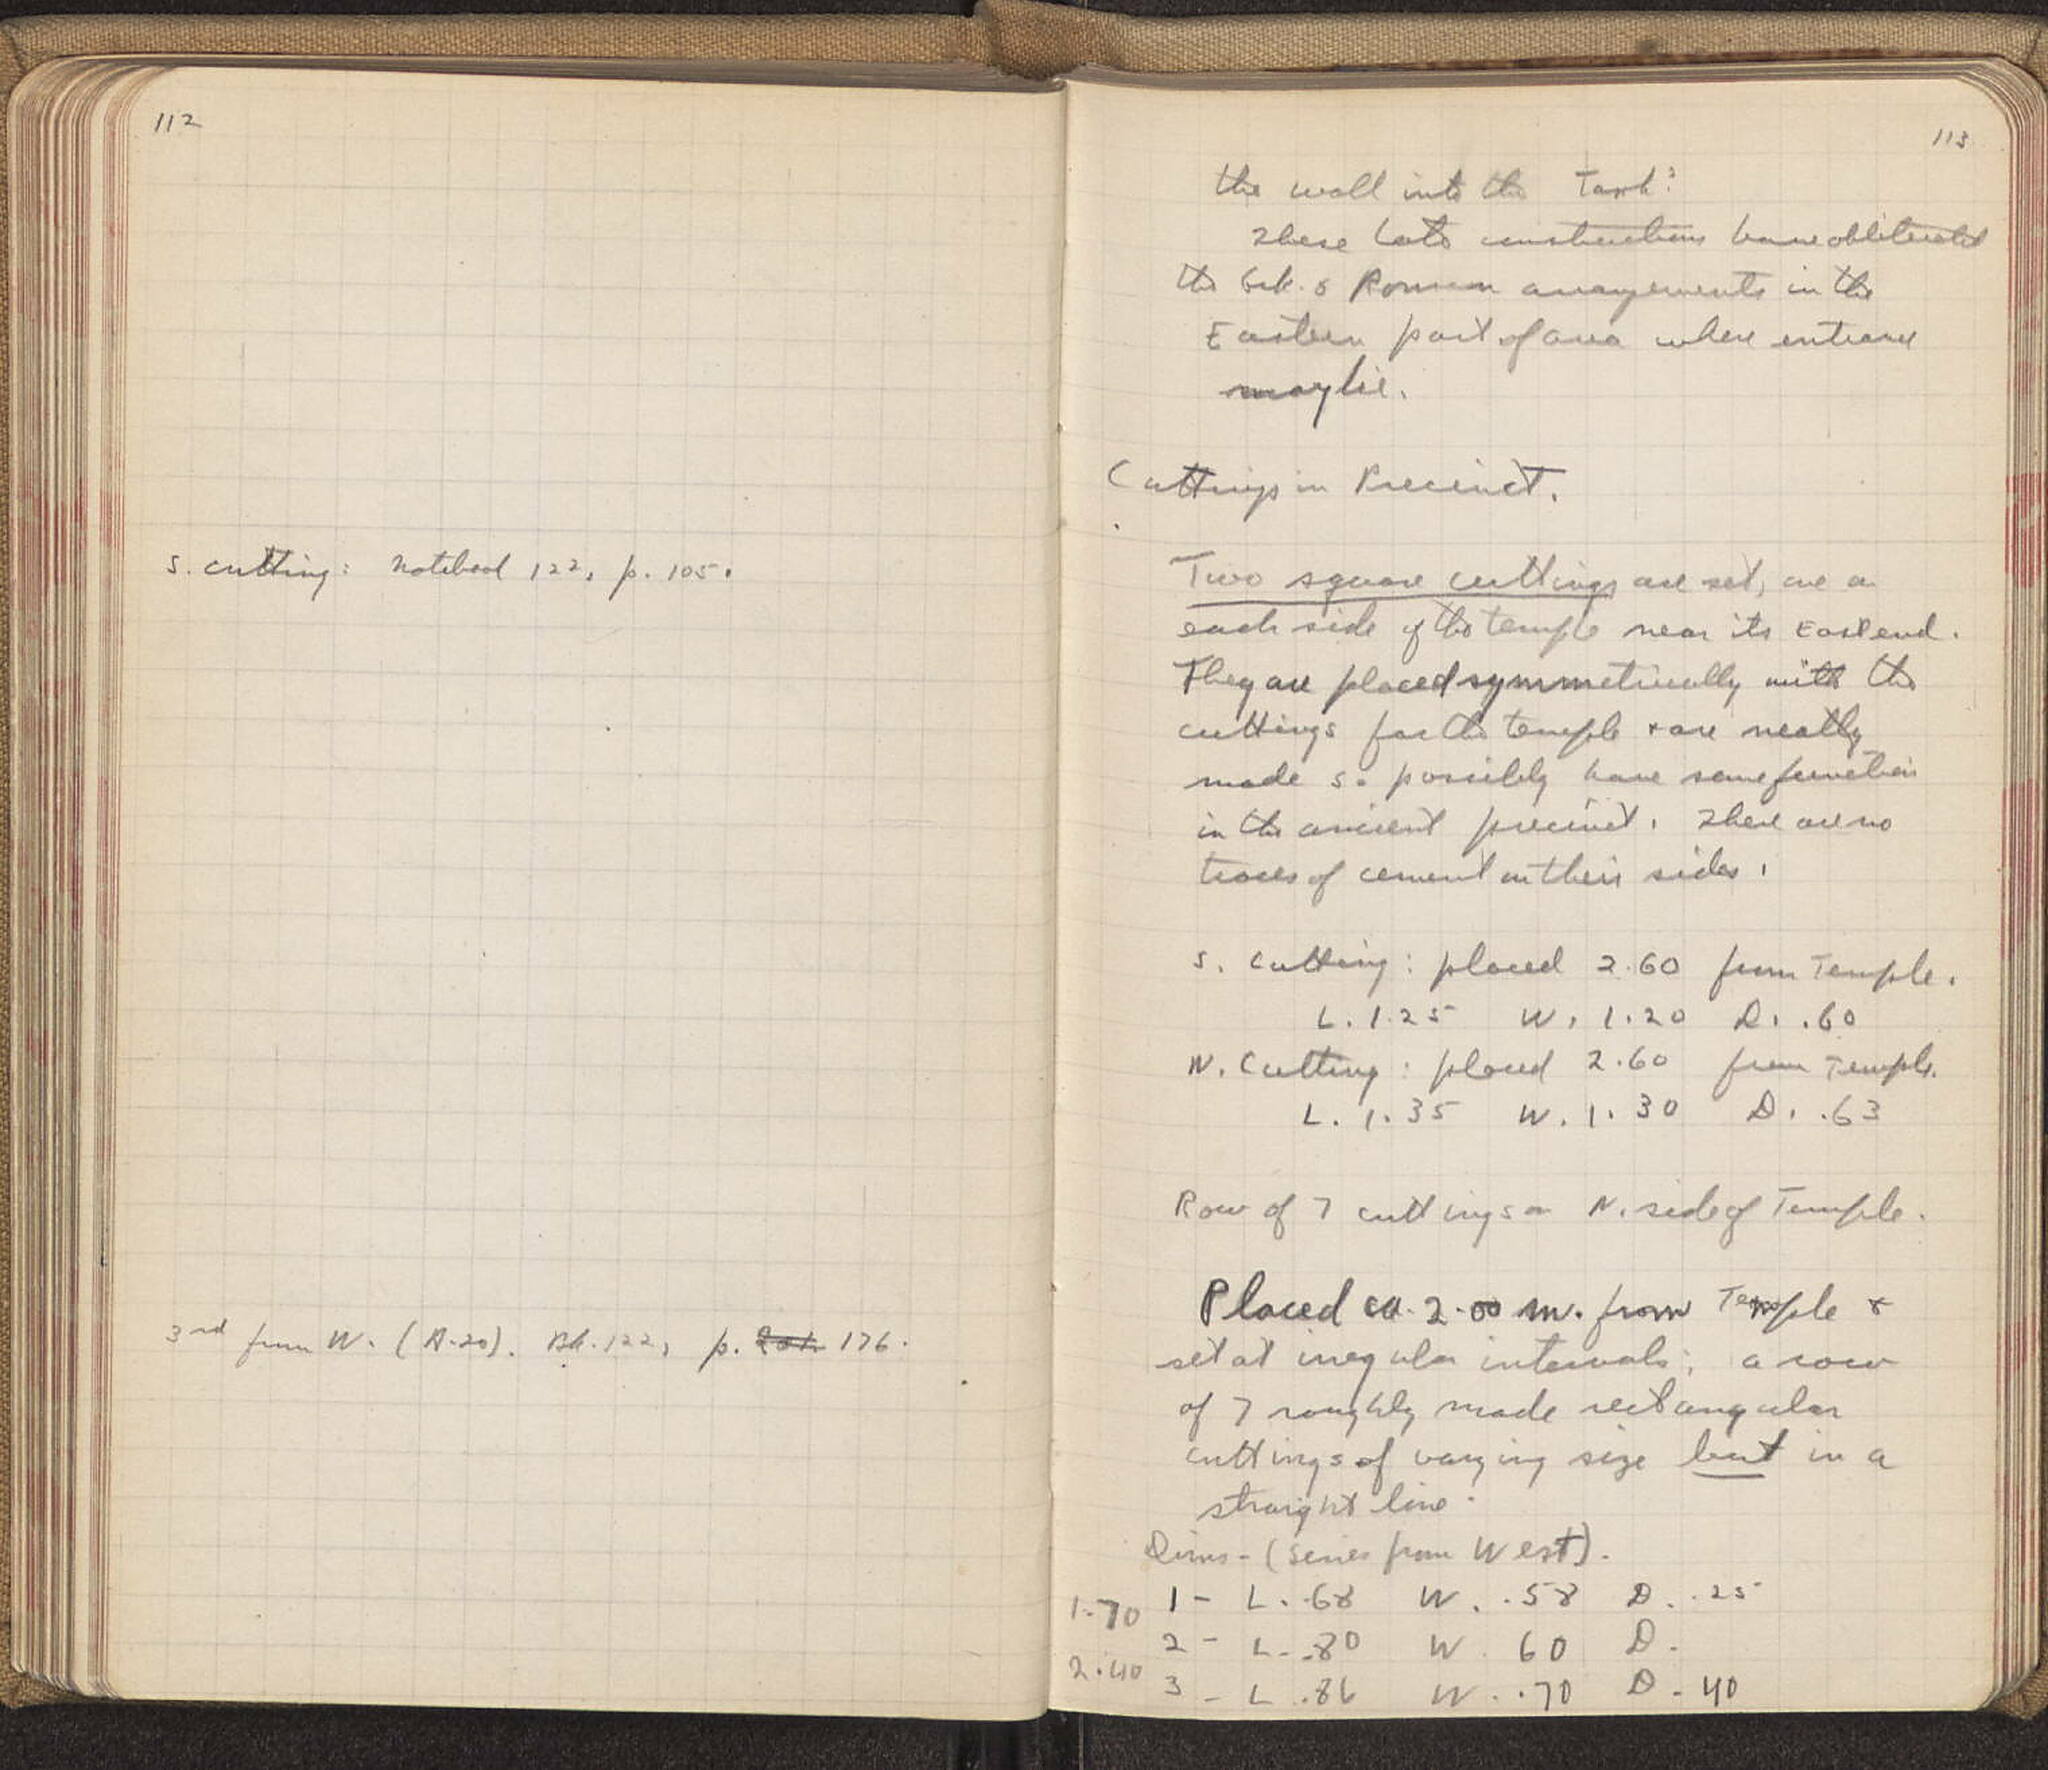 112
S. cutting: Notebook 122, p. 105.
3rd from W. (A-20). Bk. 122, p. 176.
113
the wall into the Tank?
These late constructions have obliterated
the Grk. & Roman arrangements in the
Eastern part of area where entrance
may lie.
Cuttings in Precinct.
Two square cuttings are set, one on
each side of the temple near its East end.
They are placed symmetrically with the
cuttings for the temple & are neatly
made so possibly have some function
in the ancient precinct. There are no
traces of cement on their sides.
S. Cutting: placed 2.60 from Temple.
L. 1.25 W. 1.20 D. .60
N. Cutting: placed 2.60 from Temple.
L. 1.35 W. 1.30 D. .63
Row of 7 cuttings on N. side of Temple.
Placed ca. 2.00 m. from Temple &
set at irregular intervals; a row
of 7 roughly made rectangular
cuttings of varying size but in a
straight line.
Dims - (series from West).
1 - L. .68 W. .58 D. .25
1.70
2 - L. .80 W. 60 D.
2.40
3 - L. .86 W. .70 D. 40